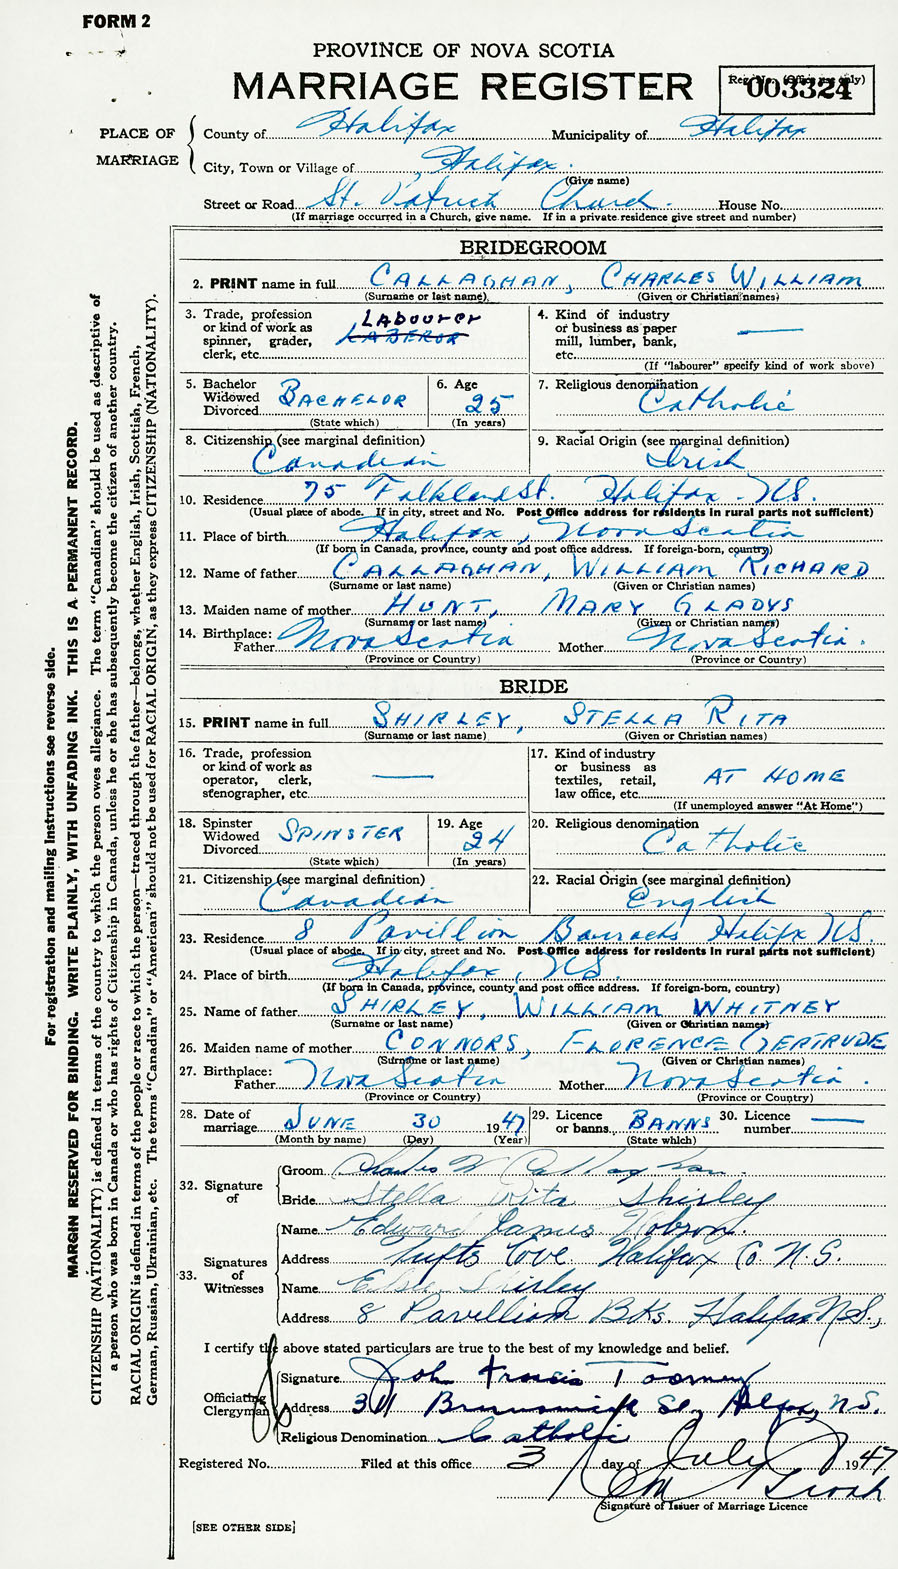 FORM 2
PROVINCE OF NOVA SCOTIA
MARRIAGE REGISTER
Reg. No. (Office use only)
003324
PLACE OF MARRIAGE
County of Halifax Municipality of Halifax
City, Town or Village of Halifax.
(Give name)
Street or Road St. Patrick Church. House No.
(If marriage occurred in a Church, give name. If in a private residence give street and number)
BRIDEGROOM
2. PRINT name in full CALLAGHAN, CHARLES WILLIAM
(Surname or last name) (Given or Christian names)
3. Trade, profession or kind of work as spinner, grader, clerk, etc. LABOURER LABEROR
4. Kind of industry or business as paper mill, lumber, bank, etc. —
(If "labourer" specify kind of work above)
5. Bachelor Widowed Divorced BACHELOR
(State which)
6. Age 25
(In years)
7. Religious denomination Catholic
8. Citizenship (see marginal definition) Canadian
9. Racial Origin (see marginal definition) Irish
10. Residence 75 Falkland St. Halifax - N.S.
(Usual place of abode. If in city, street and No. Post Office address for residents in rural parts not sufficient)
11. Place of birth Halifax, Nova Scotia
(If born in Canada, province, county and post office address. If foreign-born, country)
12. Name of father CALLAGHAN, WILLIAM RICHARD
(Surname or last name) (Given or Christian names)
13. Maiden name of mother HUNT, MARY GLADYS
(Surname or last name) (Given or Christian names)
14. Birthplace: Father Nova Scotia Mother Nova Scotia.
(Province or Country) (Province or Country)
BRIDE
15. PRINT name in full SHIRLEY, STELLA RITA
(Surname or last name) (Given or Christian names)
16. Trade, profession or kind of work as operator, clerk, stenographer, etc. —
17. Kind of industry or business as textiles, retail, law office, etc. AT HOME
(If unemployed answer "At Home")
18. Spinster Widowed Divorced SPINSTER
(State which)
19. Age 24
(In years)
20. Religious denomination Catholic
21. Citizenship (see marginal definition) Canadian
22. Racial Origin (see marginal definition) English
23. Residence 8 Pavillion Barracks Halifx N.S.
(Usual place of abode. If in city, street and No. Post Office address for residents in rural parts not sufficient)
24. Place of birth Halifax, N.S.
(If born in Canada, province, county and post office address. If foreign-born, country)
25. Name of father SHIRLEY, WILLIAM WHITNEY
(Surname or last name) (Given or Christian names)
26. Maiden name of mother CONNORS, FLORENCE GERTRUDE
(Surname or last name) (Given or Christian names)
27. Birthplace: Father Nova Scotia Mother Nova Scotia.
(Province or Country) (Province or Country)
28. Date of marriage JUNE 30 1947
(Month by name) (Day) (Year)
29. Licence or banns BANNS
(State which)
30. Licence number —
32. Signature of
Groom Charles W Callaghan.
Bride Stella Rita Shirley
33. Signatures of Witnesses
Name Edward James Hobson.
Address Tufts Cove Halifax Co. N.S.
Name Shirley
Address 8 Pavillion Bks. Halifax N.S.,
I certify the above stated particulars are true to the best of my knowledge and belief.
Officiating Clergyman
Signature John Francis Toomey
Address Brunswick St., Halifax, N.S.
Religious Denomination Catholic
Registered No. Filed at this office 3 day of July 1947
Signature of Issuer of Marriage Licence
[SEE OTHER SIDE]
For registration and mailing instructions see reverse side.
MARGIN RESERVED FOR BINDING. WRITE PLAINLY, WITH UNFADING INK. THIS IS A PERMANENT RECORD.
CITIZENSHIP (NATIONALITY) is defined in terms of the country to which the person owes allegiance. The term "Canadian" should be used as descriptive of
a person who was born in Canada or who has rights of Citizenship in Canada, unless he or she has subsequently become the citizen of another country.
RACIAL ORIGIN is defined in terms of the people or race to which the person—traced through the father—belongs, whether English, Irish, Scottish, French,
German, Russian, Ukrainian, etc. The terms "Canadian" or "American" should not be used for RACIAL ORIGIN, as they express CITIZENSHIP (NATIONALITY).